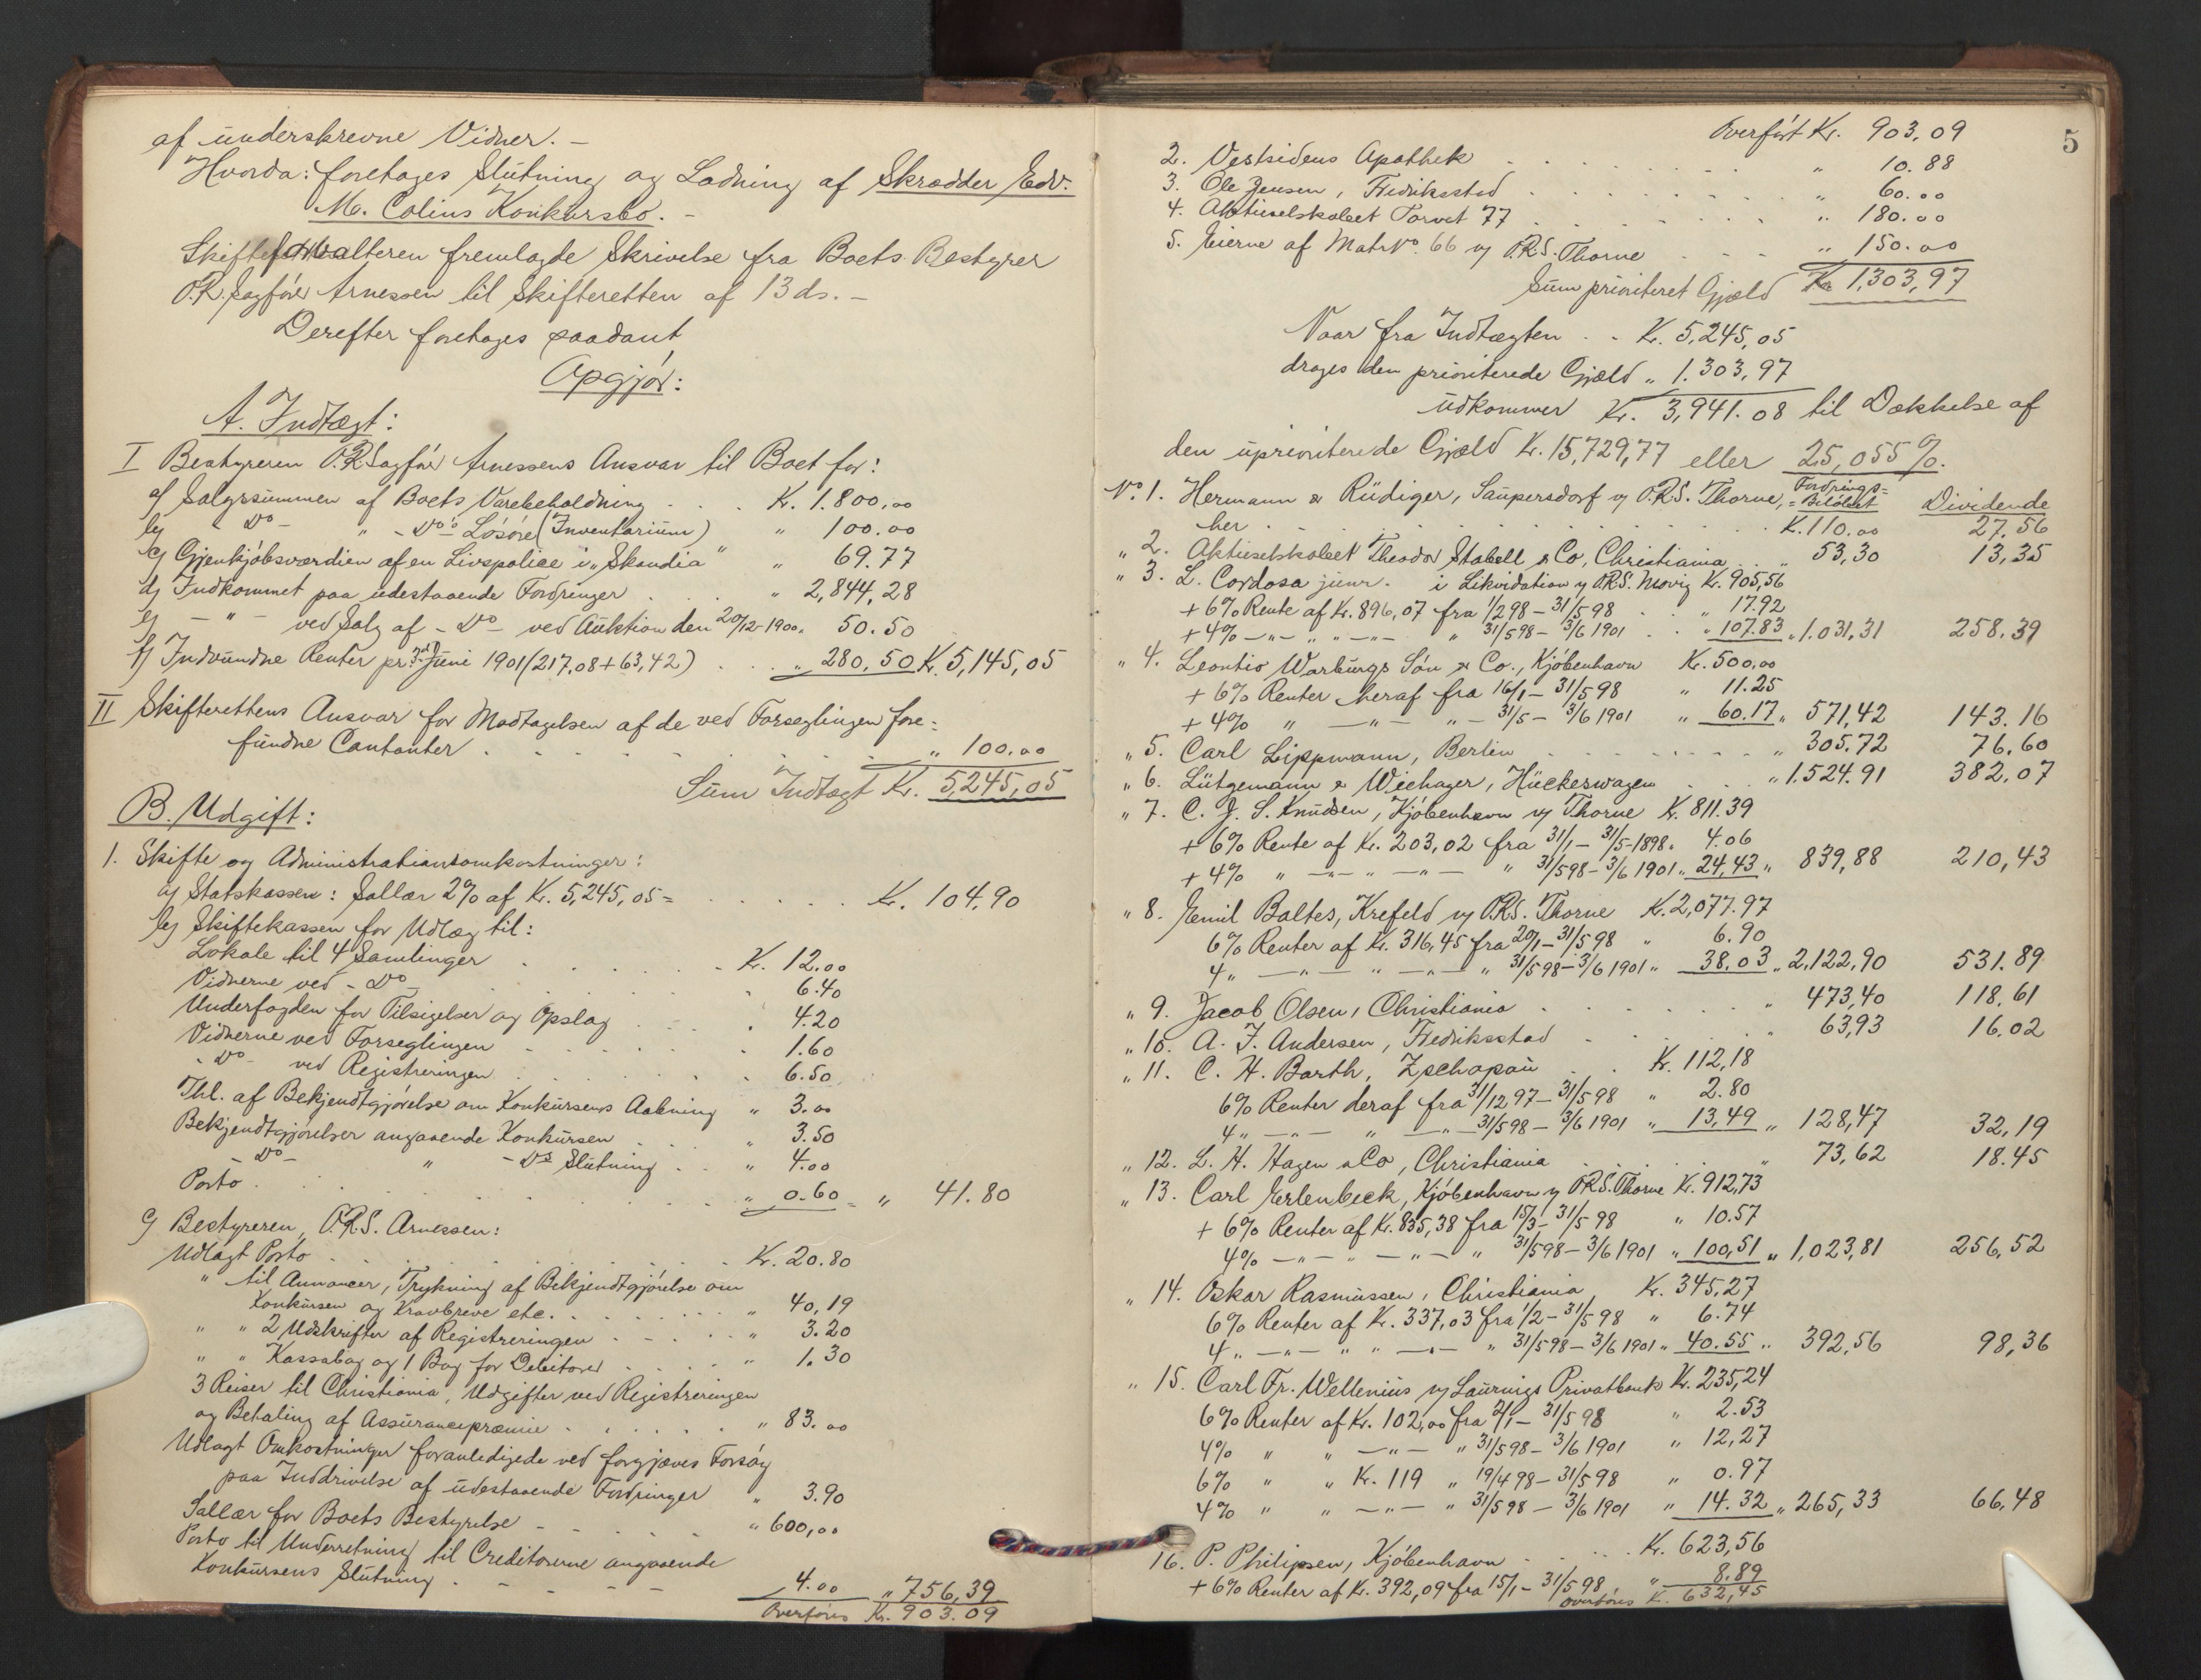 af underskrevne Vidner. –
Hvorda: foretoges Slutning og Lodning af Skrædder Edv.
M. Colins Konkursbo. –
Skifteforvalteren fremlagde Skrivelse fra Boets Bestyrer
O.R.Sagfører Arnessen til Skifteretten af 13 ds. –
Derefter foretoges saadant
Opgjør:
A. Indtægt:
I Bestyreren O.R.Sagfører Arnessens Ansvar til Boet for:
a) Salgssummen af Boets Varebeholdning . . . Kr. 1.800,00
b) Do – " – Do's Løsøre (Inventarium) " 100.00
c) Gjenkjøbsværdien af en Livspolice i „Skandia" " 69.77
d) Indkommet paa udestaaende Fordringer . . . " 2,844,28
e) – " – ved Salg af – Do – ved Auktion den 20/12-1900 " 50.50
f) Indvundne Renter pr. 3d Juni 1901 (217,08 + 63,42) . . . " 280,50 Kr. 5,145,05
II Skifterettens Ansvar for Modtagelsen af de ved Forseglingen fore=
fundne Contanter . . . " 100.00
Sum Indtægt Kr. 5,245,05
B. Udgift:
1. Skifte og Administrationsomkostninger:
a) Statskassen: Sallær 2% af Kr. 5,245,05 = . . . Kr. 104,90
b) Skiftekassen for Udlæg til:
Lokale til 4 Samlinger . . . Kr. 12.00
Vidnerne ved – Do – . . . 6.40
Underfogden for Tilsigelser og Opslag . . . 4.20
Vidnerne ved Forseglingen . . . 1.60
– Do – ved Registreringen . . . 6.50
Thl. af Bekjendtgjørelse om Konkursens Aabning " 3.00
Bekjendtgjørelser angaaende Konkursen . . . " 3.50
– Do – " – Ds Slutning . . . " 4.00
Porto . . . " 0.60 = " 41.80
c) Bestyreren, O.R.S. Arnessen:
Udlagt Porto . . . Kr. 20.80
" til Annoncer, Trykning af Bekjendtgjørelse om
Konkursen og Kravbreve etc. . . . " 40,19
" " 2 Udskrifter af Registreringen . . . " 3.20
" " Kassabog og 1 Bog for Debitorer . . . " 1.30
3 Reiser til Christiania, Udgifter ved Registreringen
og Betaling af Assurancepræmie . . . " 83.00
Udlagt Omkostninger foranledigede ved forgjæves Forsøg
paa Inddrivelse af udestaaende Fordringer " 3.90
Sallær for Boets Bestyrelse . . . " 600,00
Porto til Underretning til Creditorerne angaaende
Konkursens Slutning . . . 4.00 " 756,39
Overføres Kr. 903.09
5
Overført Kr. 903,09
2. Vestsidens Apothek . . . " 10.88
3. Ole Jensen, Fredriksstad . . . " 60.00
4. Aktieselskabet Torvet 77 . . . " 180.00
5. Eierne af MatrNo. 66 v/ O.R.S. Thorne . . . " 150.00
Sum prioriteret Gjæld Kr. 1,303,97
Naar fra Indtægten . . Kr. 5,245,05
drages den prioriterede Gjæld " 1.303,97
udkommer Kr. 3,941.08 til Dækkelse af
den uprioriterede Gjæld Kr. 15,729,77 eller 25,055%.
Fordrings=
No. 1. Hermann & Rüdiger, Saupersdorf v/ O.R.S. Thorne, = Beløbet Dividende
her . . . K. 110.00 27.56
" 2. Aktieselskabet Theodor Stabell & Co, Christiania . . " 53,30 13,35
" 3. L. Cordosa junr. i Likvidation v/ O.R.S. Movig Kr. 905,56
+ 6% Rente af Kr. 896,07 fra 1/2 98 – 31/5 98 . . " 17.92
+ 4% – " – " " – " – " 31/5 98 – 3/6 1901 . . " 107.83 " 1.031,31 258,39
" 4. Leontio Warburgs Søn & Co., Kjøbenhavn Kr. 500,00
+ 6% Renter heraf fra 16/1 – 31/5 98 " 11.25
+ 4% " – " – " – 31/5 – 3/6 1901 " 60.17 " 571,42 143.16
" 5. Carl Lippmann, Berlin . . . " 305.72 76.60
" 6. Lütgemann & Wiehager, Hückeswagen . . . " 1.524.91 382,07
" 7. C. J. S. Knudsen, Kjøbenhavn v/ Thorne K. 811.39
+ 6% Rente af Kr. 203,02 fra 31/1 – 31/5-1898 " 4.06
+ 4% " – " – " – " – " 31/5 98 – 3/6 1901 " 24,43 " 839,88 210,43
" 8. Emil Baltes, Krefeld v/ O.R.S. Thorne K. 2,077.97
6% Renter af Kr. 316,45 fra 20/1 – 31/5 98 " 6.90
4 " – " – " – " – " 31/5 98 – 3/6 1901 " 38.03 " 2,122,90 531.89
" 9. Jacob Olsen, Christiania . . . " 473,40 118,61
" 10. A. J. Andersen, Fredriksstad . . . " 63,93 16.02
" 11. C. H. Barth, Zschopau . . Kr. 112,18
6% Renter deraf fra 31/12 97 – 31/5 98 " 2.80
4 " – " – " – " – 31/5 98 – 3/6 1901 " 13,49 " 128,47 32,19
" 12. L. H. Hagen & Co, Christiania . . . " 73,62 18.45
" 13. Carl Erlenbeck, Kjøbenhavn v/ O.R.S. Thorne Kr. 912,73
+ 6% Renter af Kr. 835,38 fra 15/3 – 31/5 98 " 10.57
4% – " – " – " – " 31/5 98 – 3/6 1901 " 100,51 " 1,023,81 256,52
" 14. Oskar Rasmussen, Christiania Kr. 345,27
6% Renter af Kr. 337,03 fra 1/2 – 31/5 98 " 6.74
4 " – " – " " – " – " 31/5 98 – 3/6 1901 " 40.55 " 392,56 98,36
" 15. Carl Fr. Wellenius v/ Laurvigs Privatbank Kr. 235,24
6% Renter af Kr. 102,00 fra 2/1 – 31/5 98 " 2.53
4% " " – " – " 31/5 98 – 3/6 1901 " 12,27
6% " " Kr. 119 " 19/4 98 – 31/5 98 " 0.97
4% " " – " – " 31/5 98 – 3/6 1901 " 14.32 " 265,33 66,48
16. P. Philipsen, Kjøbenhavn . . . Kr. 623,56
+ 6% Renter af Kr. 392,09 fra 15/1 – 31/5 98 " 8.89
Overføres K. 632,45